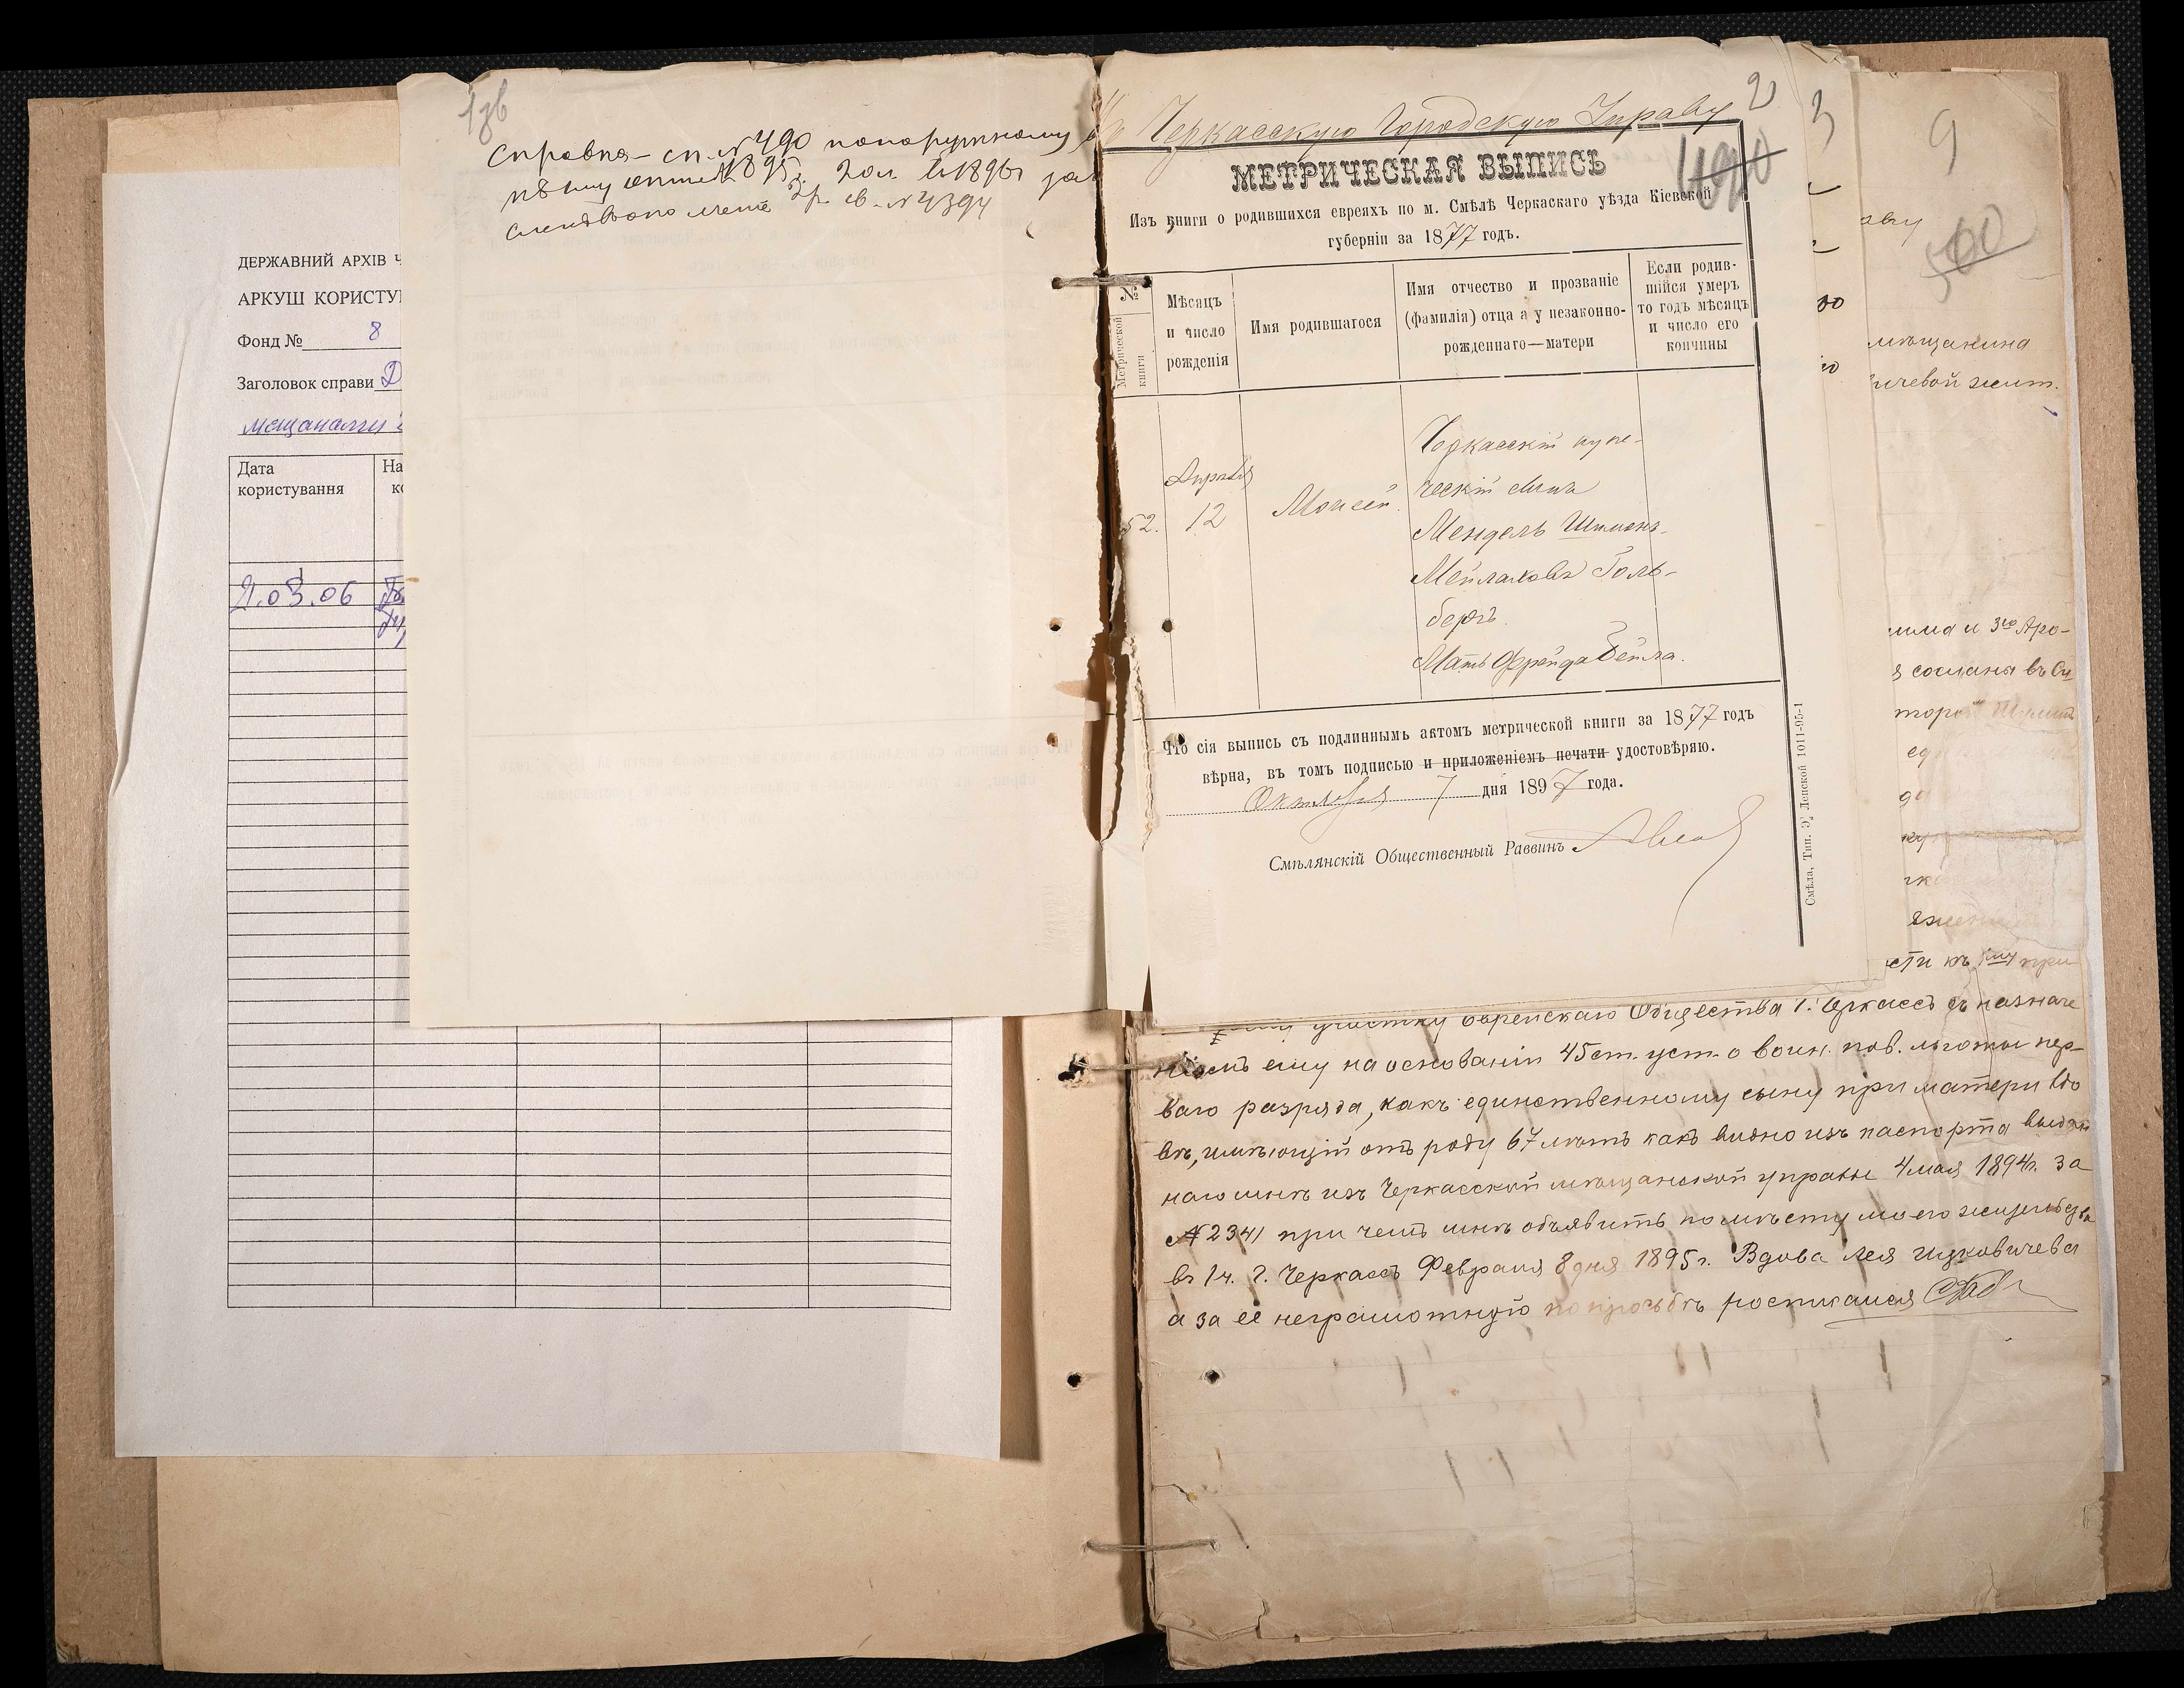 ДЕРЖАВНИЙ АРХІВ Ч
АРКУШ КОРИСТУ
Фонд № 8
Заголовок справи Д
мещанами
Дата
користування
На
ко
21.03.06
1зв
Справка - сп. № 490
2
Черкасскую Городскую Управу
490
МЕТРИЧЕСКАЯ ВЫПИСЬ
Изъ книги о родившихся евреяхъ по м. Смѣлѣ Черкаскаго уѣзда Кіевской
губерніи за 1877 годъ.
№
Метрической книги
Мѣсяцъ
и число
рожденія
Имя родившагося
Имя отчество и прозваніе
(фамилія) отца а у незаконно-
рожденнаго—матери
Если родив-
шійся умеръ
то годъ мѣсяцъ
и число его
кончины
52.
Апрѣля
12
Моисей
Черкасскій купе-
ческій сынъ
Мендель Шимонъ-
Мейлаховъ Голь-
бергъ.
Мать Фрейда Бейла.
Что сія выпись съ подлиннымъ актомъ метрической книги за 1877 годъ
вѣрна, въ томъ подписью и приложеніемъ печати удостовѣряю.
Октября 7 дня 1897 года.
Смѣлянскій Общественный Раввинъ
Смѣла, Тип. Э. Лепской 1011-95-1
3
9
500
мѣщанина
ичевой жит.
има и 3го Аро-
я сосланы въ Си
торой
сти къ 1му при
участку Еврейскаго Общества г. Черкассъ съ назначе
ніемъ ему на основаніи 45 ст. уст. о воин. пов. льготы пер-
ваго разряда, какъ единственному сыну при матери вдо
вѣ, имѣющій отъ роду 67 лѣтъ какъ видно изъ паспорта выдан
наго мнѣ изъ Черкасской мѣщанской управы 4 мая 1894 г. за
№ 2341 при чемъ мнѣ объявить по мѣсту моего жительства
въ 1 ч. г. Черкассъ Февраля 8 дня 1895 г. Вдова Лея Ицковичева
а за её неграмотную по просьбѣ росписался